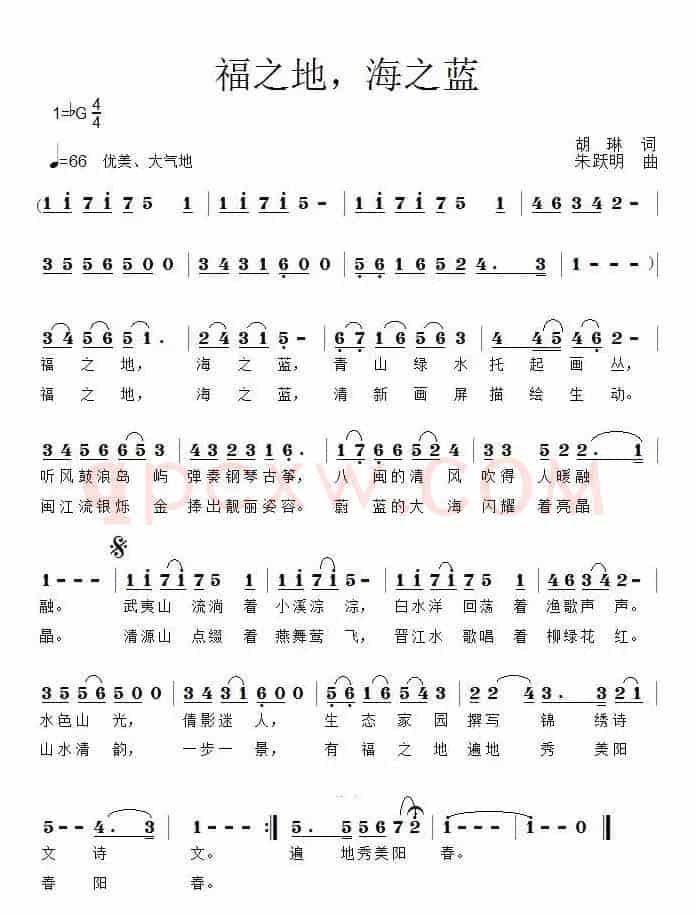 福之地，海之蓝
1=♭G 4/4
胡 琳 词
♩=66 优美、大气地
朱跃明 曲
(1 i 7 i 7 5 1 | 1 i 7 i 5 - | 1 i 7 i 7 5 1 | 1 4 6 3 4 2 - |
3 5 5 6 5 0 0 | 3 4 3 1 6 0 0 | 5 6 1 6 5 2 4. 3 | 1 - - - )|
3 4 5 6 5 1. | 2 4 3 1 5 - | 6 7 1 6 5 6 3 | 4 4 5 1 2 - |
福 之 地， 海 之 蓝， 青 山 绿 水 托 起 画 丛，
福 之 地， 海 之 蓝， 清 新 画 屏 描 绘 生 动。
3 4 5 6 6 5 3 | 4 3 2 3 1 6. | 1 7 6 6 5 2 2. 3 | 5 2 2. 1 |
听风鼓浪岛 屿 弹奏钢琴古筝， 八 闽的清 风 吹得 人暖融
闽江流银烁 金 捧出靓丽姿容。 蔚 蓝的大 海 闪耀 着亮晶
1 - - - | 1 i 7 i 7 5 1 | 1 i 7 i 5 - | 1 i 7 i 7 5 1 | 1 4 6 3 4 2 - |
融。 武夷山 流淌 着 小溪淙 淙， 白水洋 回荡 着 渔歌声 声。
晶。 清源山 点缀 着 燕舞莺 飞， 晋江水 歌唱 着 柳绿花 红。
3 5 5 6 5 0 0 | 3 4 3 1 6 0 0 | 5 6 1 6 5 4 3 | 2 2 4 3. 3 2 1 |
水色山 光， 倩影迷 人， 生 态 家 园 撰写 锦 绣诗
山水清 韵， 一步一 景， 有 福 之 地 遍地 秀 美阳
5 - - 4. 3 | 1 - - - :| 5. 5 5 6 7 2 | i - - - | i - - - ‖
文 诗 文。 遍 地秀美阳 春。
春 阳 春。
qpcxw.com